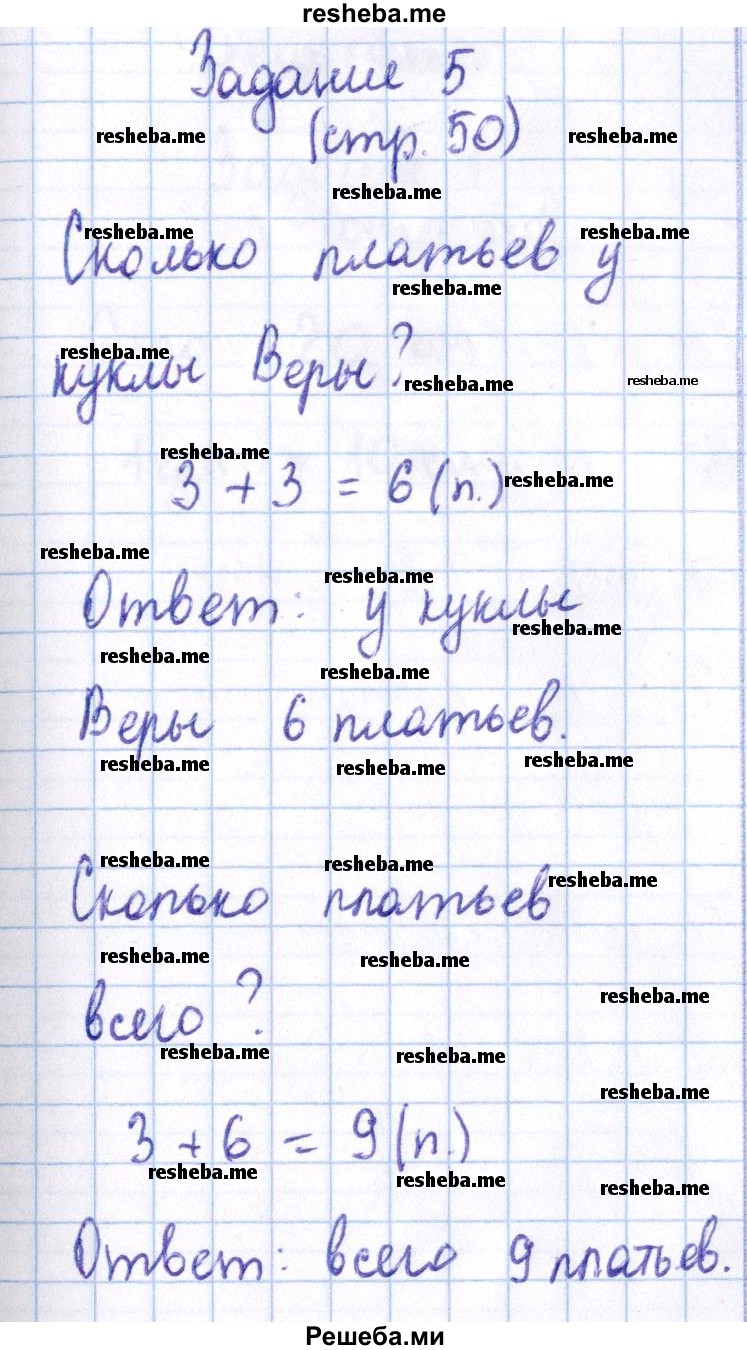 resheba.me
Задание 5
resheba.me resheba.me
(стр. 50)
resheba.me
resheba.me resheba.me
Сколько платьев у
resheba.me
resheba.me
куклы Веры?
resheba.me resheba.me
resheba.me
3 + 3 = 6 (п.)
resheba.me
resheba.me
resheba.me
Ответ: у куклы
resheba.me
resheba.me
resheba.me
Веры 6 платьев.
resheba.me resheba.me resheba.me
resheba.me resheba.me resheba.me
Сколько платьев
resheba.me resheba.me
resheba.me
всего?
resheba.me resheba.me
resheba.me
3 + 6 = 9 (п.)
resheba.me resheba.me resheba.me
Ответ: всего 9 платьев.
Решеба.ми